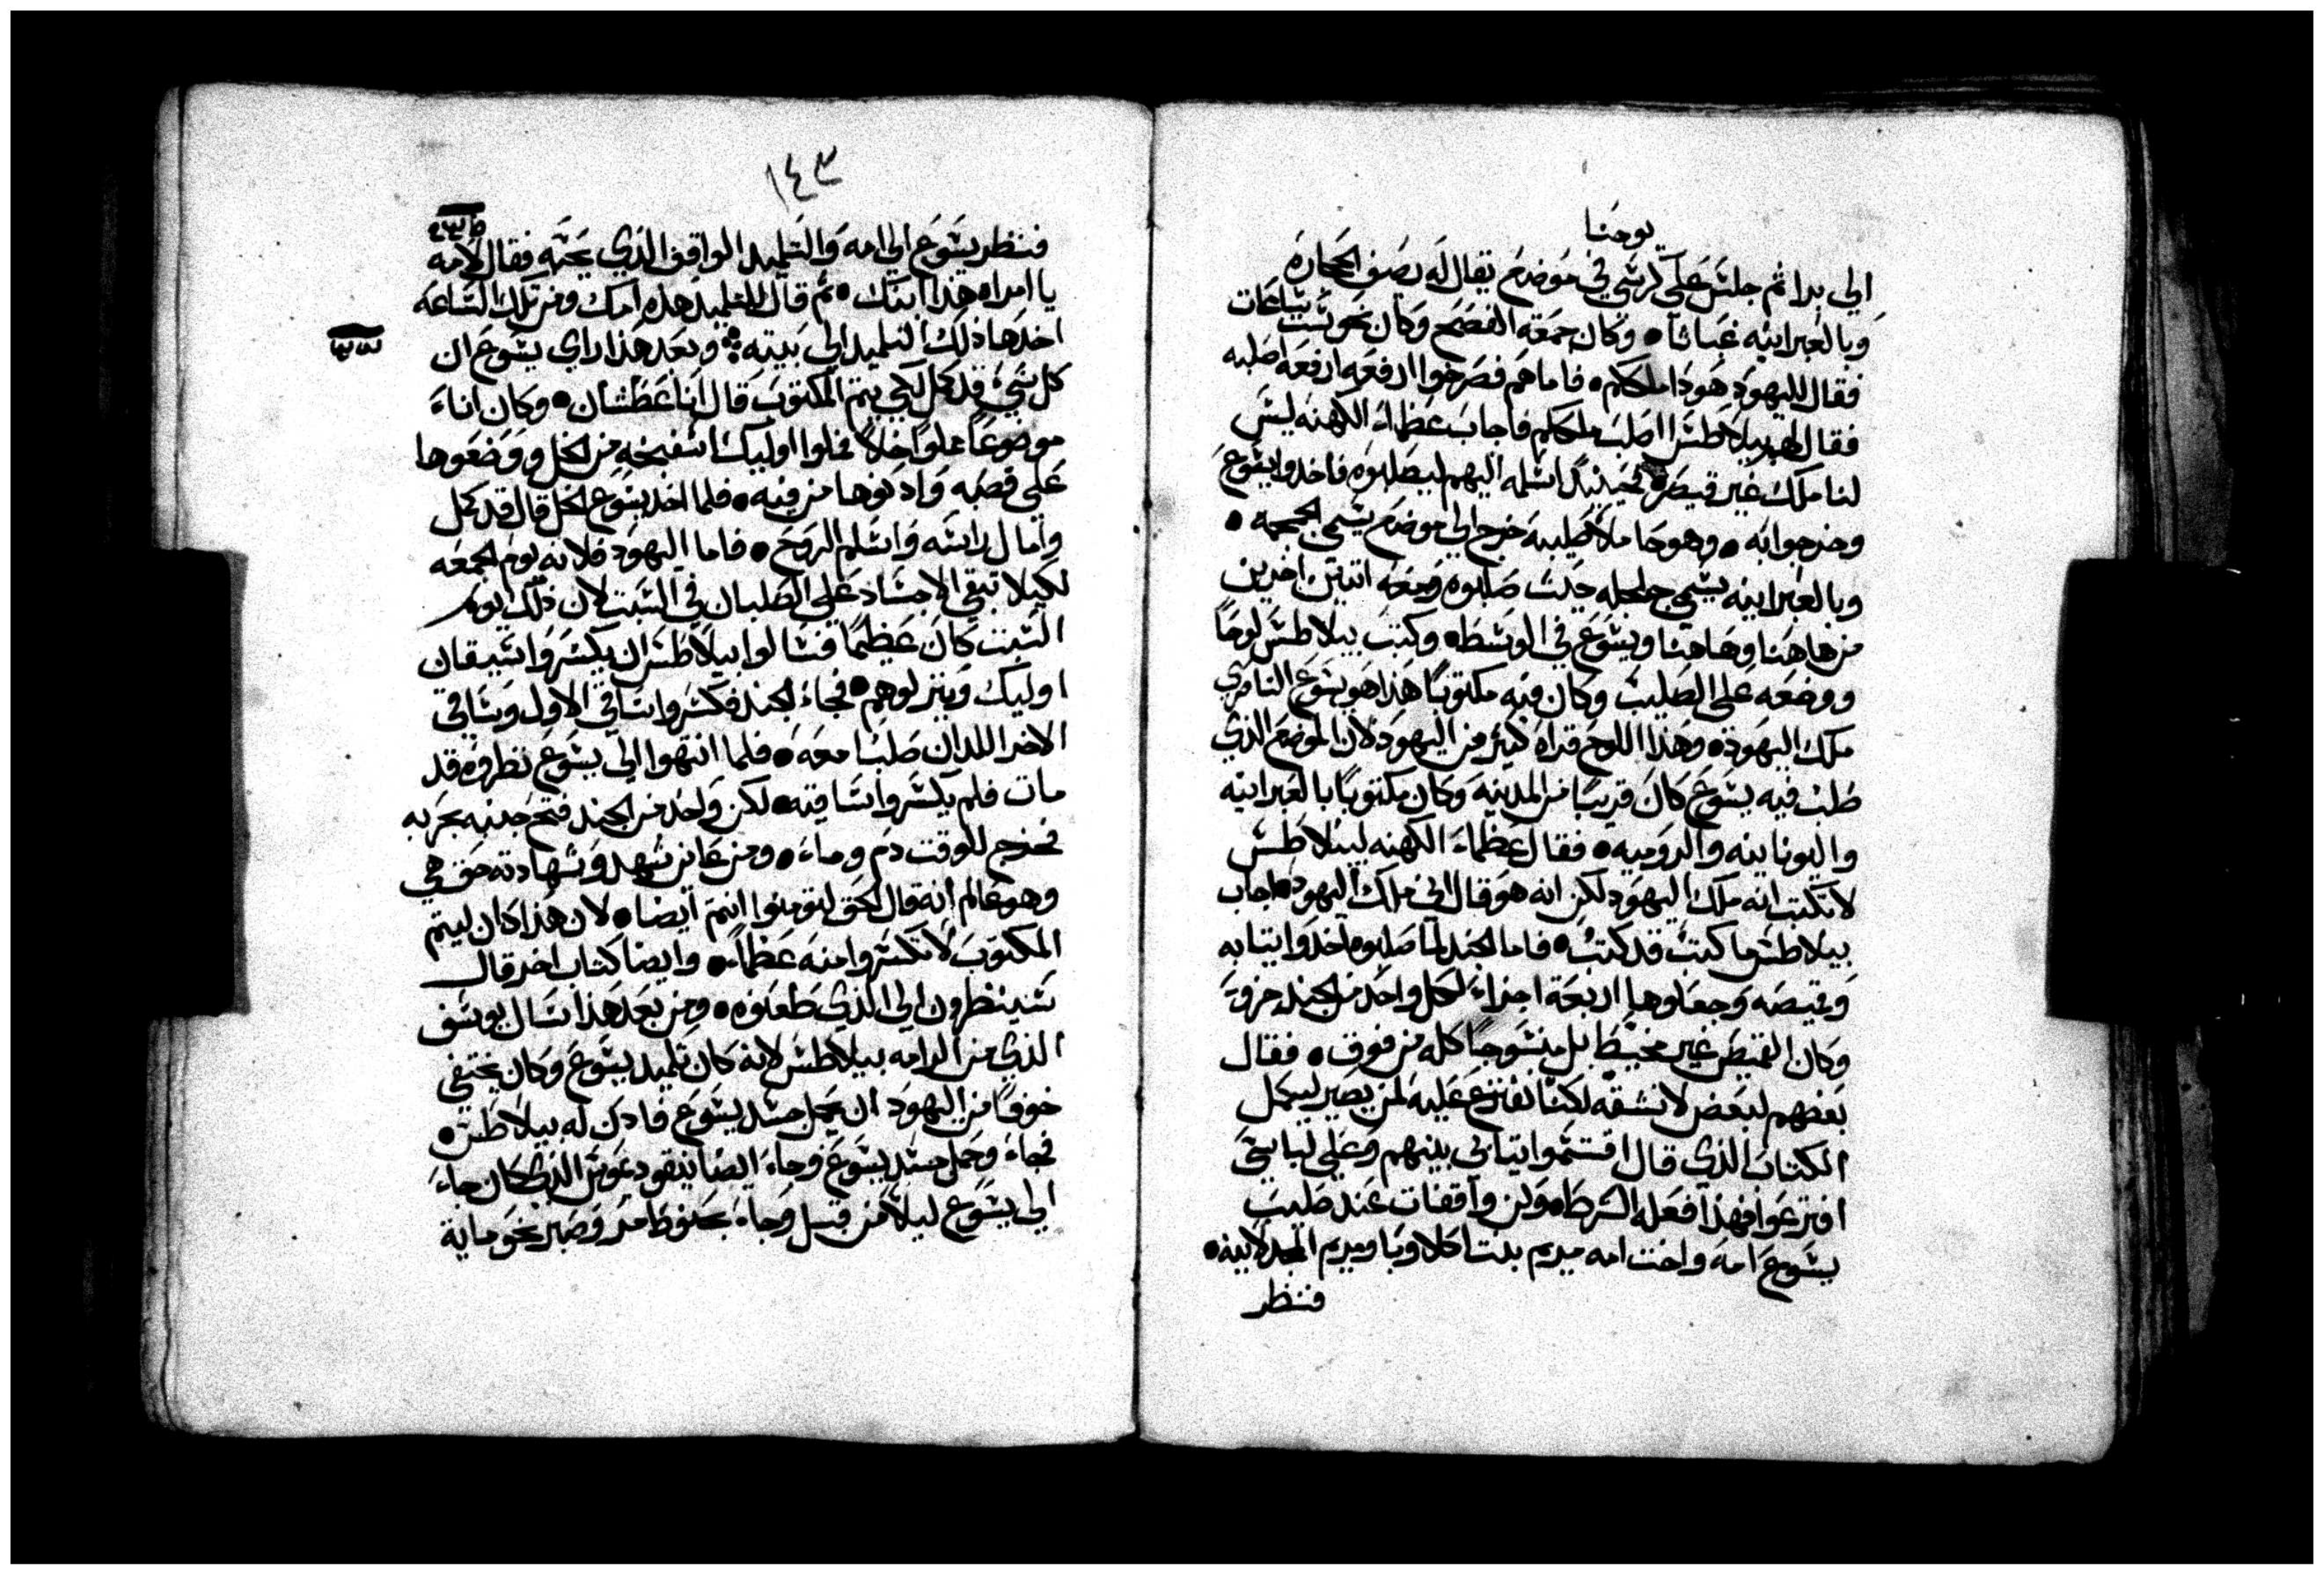 يوحنا
الي برا ثم جلس علي كرسي في موضع يقال له رصف الحجاره
وبالعبرانيه غباثا • وكان جمعة الفصح وكان نحو ست ساعات
فقال لليهود هودا ملككم • فاما هم فصرخوا ارفعه ارفعه اصلبه
فقال لهم بيلاطس ااصلب ملككم فاجاب عظماء الكهنه ليس
لنا ملك غير قيصر • فحينيد اسلمه اليهم ليصلبوه فاخدوا يشوع
وخرجوا به • وهو حاملا صليبه خرج الي موضع يسمي الجمجمه •
وبالعبرانيه يسمي جلجله حيث صلبوه ومعه اتنين اخرين
من هاهنا وهاهنا ويشوع في الوسط • وكتب بيلاطس لوحا
ووضعه علي الصليب وكان فيه مكتوبا هذا هو يشوع الناصري
ملك اليهود • وهذا اللوح قراه كثير من اليهود لان الموضع الذي
صلب فيه يشوع كان قريبا من المدينه وكان مكتوبا بالعبرانيه
واليونانيه والروميه • فقال عظماء الكهنه لبيلاطس
لا تكتب انه ملك اليهود لكن انه هو قال اني ملك اليهود • اجاب
بيلاطس ما كتبت قد كتبت • فاما الجند لما صلبوه اخدوا تيابه
وقميصه وجعلوها اربعة اجزاء لكل واحد من الجند جزو
وكان القميص غير مخيط بل منسوجا كله من فوق • فقال
بعضهم لبعض لا نشقه لكنا نقترع عليه لمن يصير ليكمل
الكتاب الذي قال اقتسموا تيابي بينهم وعلي لباسي
اقترعوا فهذا فعله الشرط • وكن واقفات عند صليب
يشوع امه واخت امه مريم بنت اكلاوبا ومريم المجدلانيه •
فنظر
١٤٣
فنظر يشوع الي امه والتلميد الواقف الذي يحبه فقال لامه
يا امراه هذا ابنك • ثم قال للتلميد هذه امك ومن تلك الساعه
اخدها ذلك التلميد الي بيته • وبعد هذا راي يشوع ان
كل شيء قد كمل لكي يتم المكتوب قال انا عطشان • وكان اناء
موضوعا مملوا خلا فملوا اوليك اسفنجه من الخل ووضعوها
علي قصبه وادنوها من فيه • فلما اخد يشوع الخل قال قد كمل
وامال راسه واسلم الروح • فاما اليهود فلانه يوم الجمعه
لكيلا تبقي الاجساد علي الصلبان في السبت لان ذلك اليوم
السبت كان عظيما فسالوا بيلاطس ان يكسروا سيقان
اوليك وينزلوهم • فجاء الجند فكسروا ساقي الاول وساقي
الاخر اللدان صلبا معه • فلما انتهوا الي يشوع نظروه قد
مات فلم يكسروا ساقيه • لكن واحد من الجند فتح جنبه بحربه
فخرج للوقت دم وماء • ومن عاين شهد وشهادته حق هي
وهو عالم انه قال الحق لتومنوا انتم ايضا • لان هذا كان ليتم
المكتوب لا تكسروا منه عظما • وايضا كتاب اخر قال
سينظرون الي الذي طعنوه • ومن بعد هذا سال يوسف
الذي من الرامه بيلاطس لانه كان تلميد يشوع وكان يختفي
خوفا من اليهود ان يحمل جسد يشوع فادن له بيلاطس •
فجاء وحمل جسد يشوع وجاء ايضا نيقوديموس الذي كان جاء
الي يشوع ليلا من قبل وجاء بحنوط مر وصبر نحو ماية